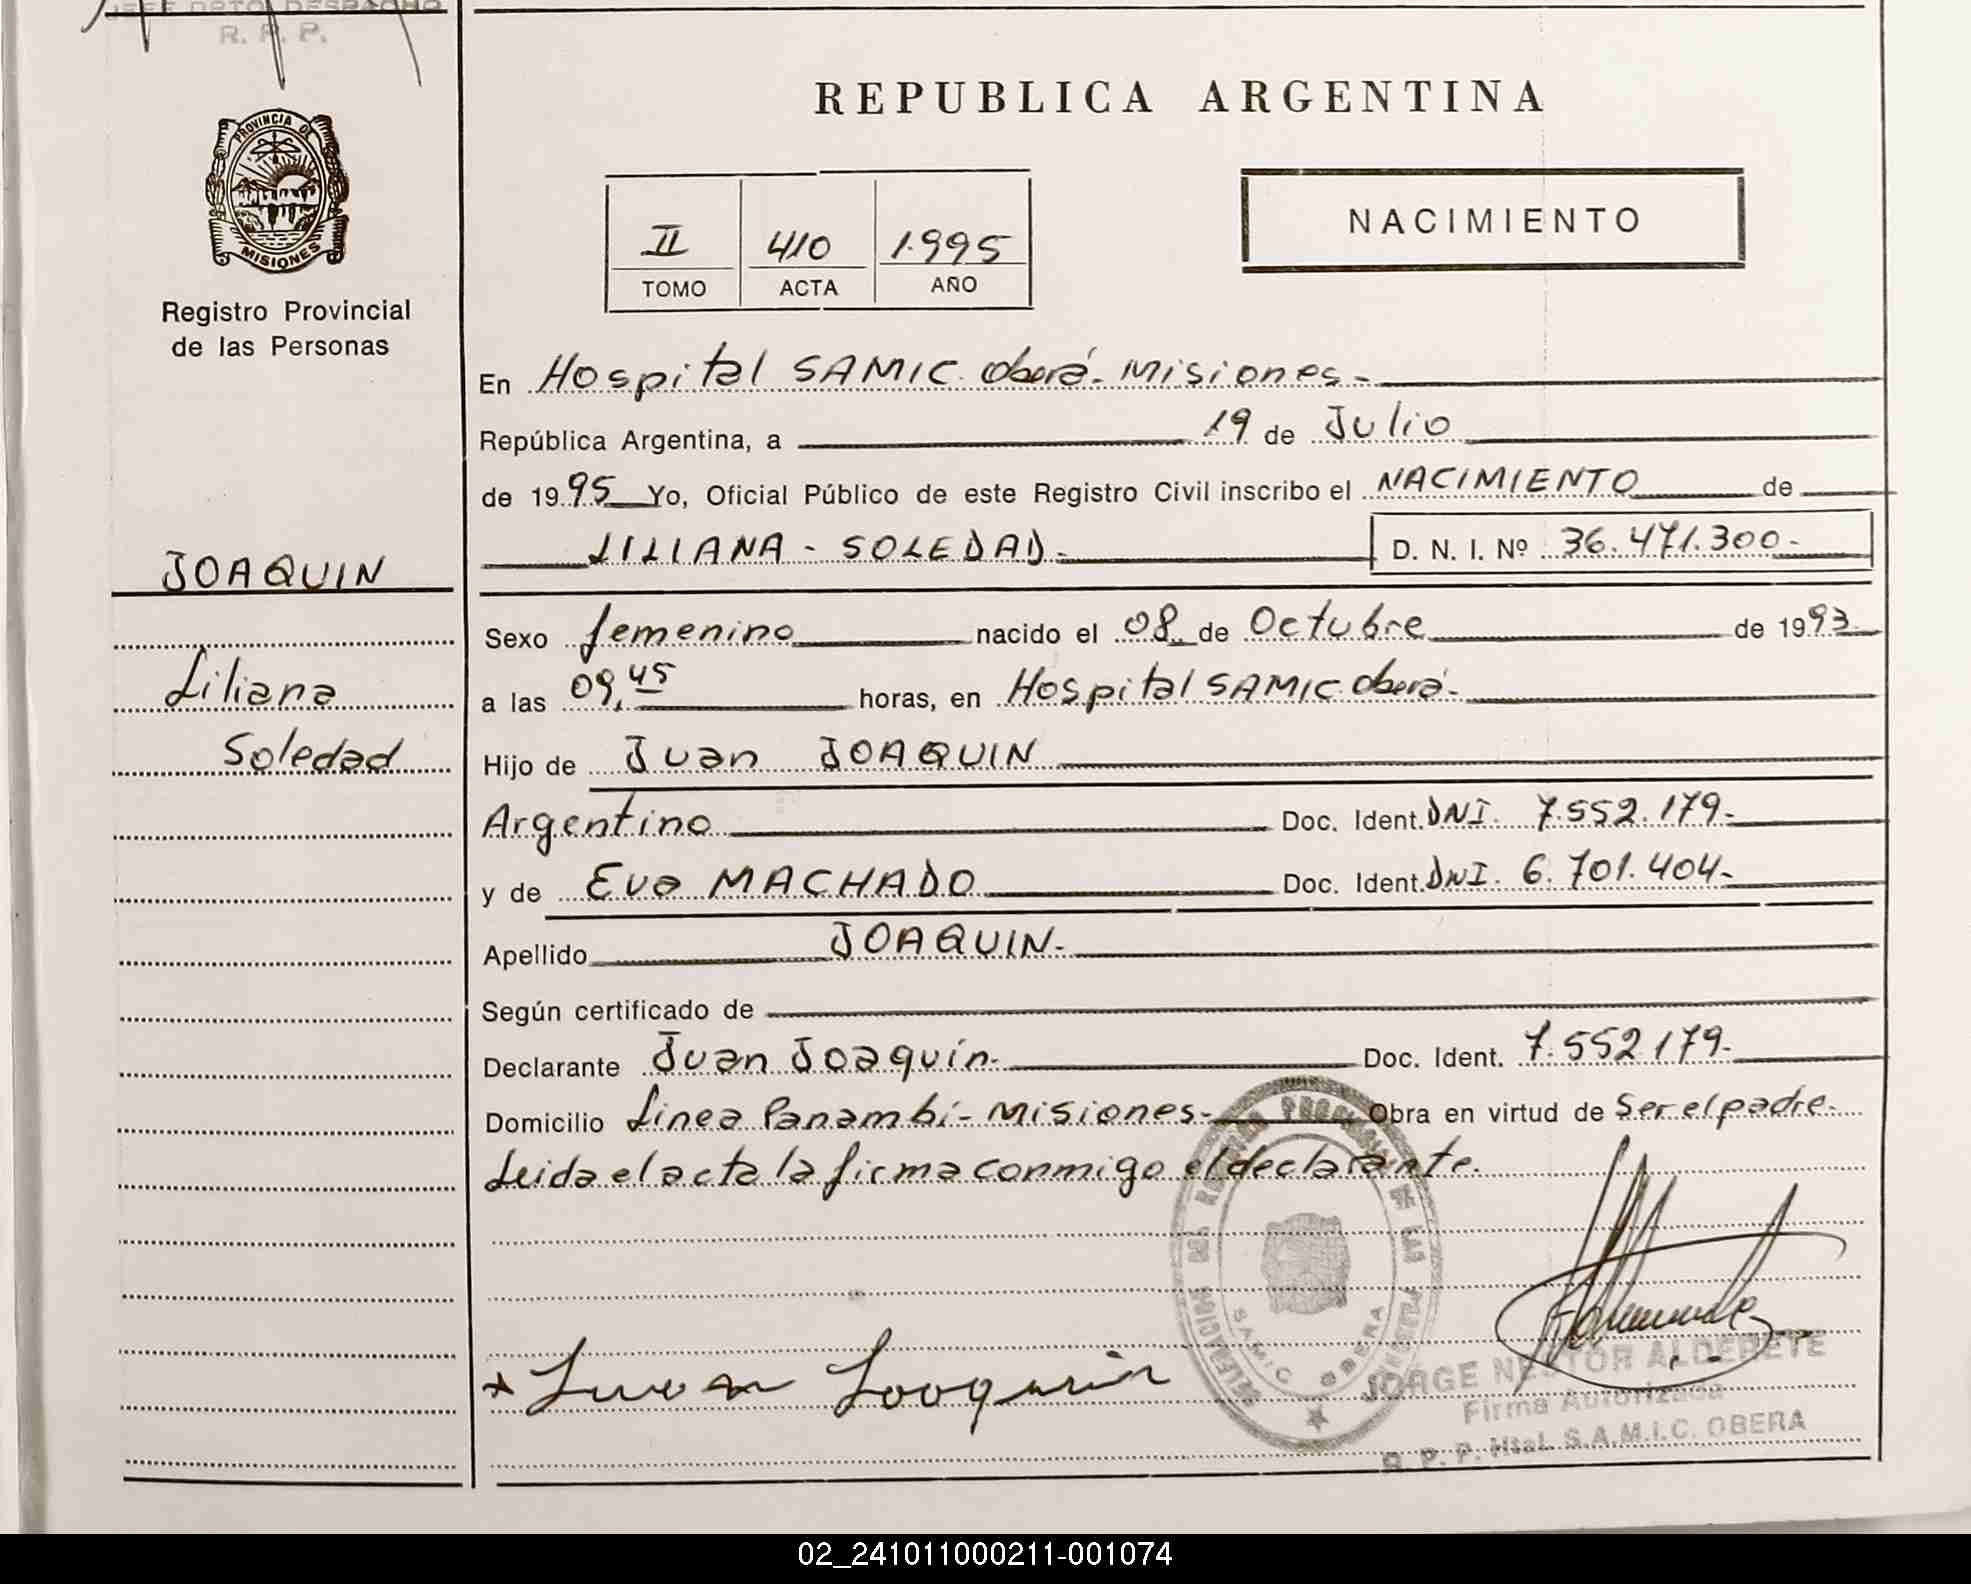 JEFE DPTO DESPACHO
R. P. P.
PROVINCIA DE
MISIONES
Registro Provincial
de las Personas
JOAQUIN
Liliana
Soledad
REPUBLICA ARGENTINA
II 410 1.995
TOMO ACTA AÑO
NACIMIENTO
En Hospital SAMIC. Oberá.- Misiones.-
República Argentina, a 19 de Julio
de 19 95 Yo, Oficial Público de este Registro Civil inscribo el NACIMIENTO de
LILIANA - SOLEDAD.- D. N. I. Nº 36.471.300.-
Sexo femenino nacido el 08 de Octubre de 19 93
a las 09,45 horas, en Hospital SAMIC. Oberá.-
Hijo de Juan JOAQUIN
Argentino Doc. Ident. DNI. 7.552.179.-
y de Eva MACHADO Doc. Ident. DNI. 6.701.404.-
Apellido JOAQUIN.-
Según certificado de
Declarante Juan Joaquín.- Doc. Ident. 7.552.179.-
Domicilio Línea Panambí - Misiones.- Obra en virtud de Ser el padre.-
Leida el acta la firma conmigo el declarante.
Juan Joaquin
SAMIC OBERA
JORGE NESTOR ALDERETE
Firma Autorizada
R. P. P. Htal. S.A.M.I.C. OBERA
02_241011000211-001074